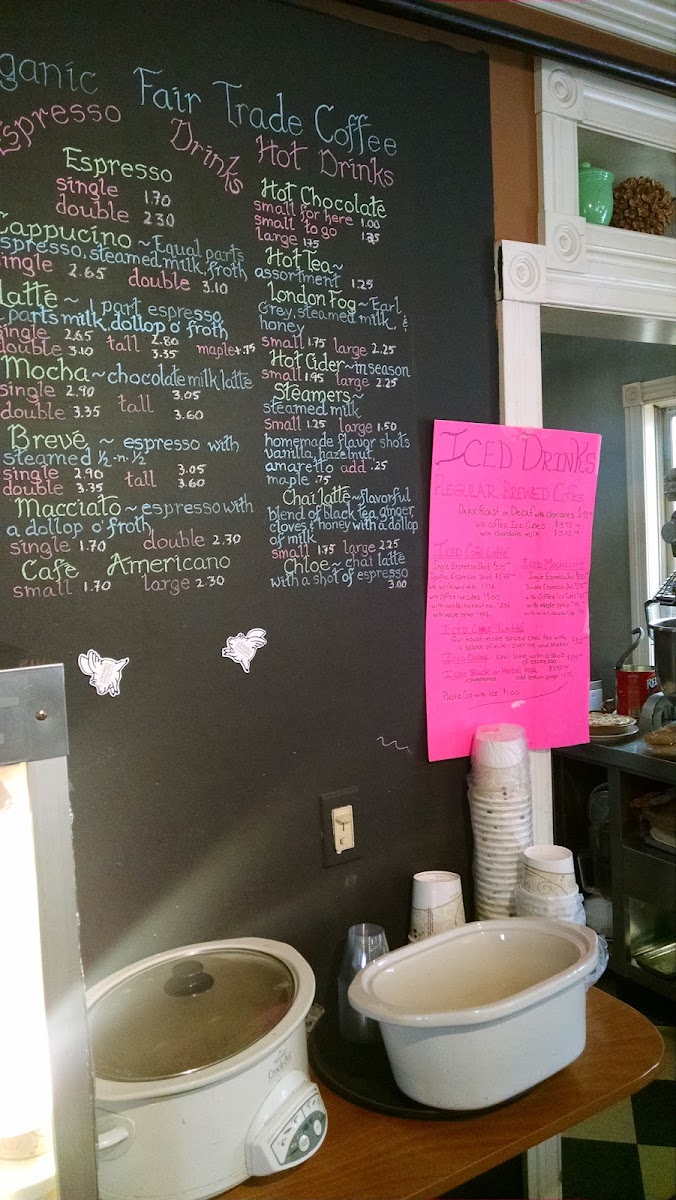 ganic Fair Trade Coffee
Espresso Drinks
Espresso
single 1.70
double 2.30
Cappucino ~ Equal parts
espresso, steamed milk, froth
single 2.65 double 3.10
Latte ~ 1 part espresso
parts milk, dollop o' froth
single 2.65 tall 2.80
double 3.10 3.35 maple +.75
Mocha ~ chocolate milk latte
single 2.90 tall 3.05
double 3.35 3.60
Brevé ~ espresso with
steamed ½-n-½
single 2.90 tall 3.05
double 3.35 3.60
Macciato ~ espresso with
a dollop o' froth
single 1.70 double 2.30
Cafe Americano
small 1.70 large 2.30
Hot Drinks
Hot Chocolate
small for here 1.00
small to go 1.25
large 1.75
Hot Tea ~
assortment 1.25
London Fog ~ Earl
Grey, steamed milk &
honey
small 1.75 large 2.25
Hot Cider ~ in season
small 1.95 large 2.25
Steamers ~
steamed milk
small 1.25 large 1.50
homemade flavor shots
vanilla, hazelnut,
amaretto add .25
maple .75
Chai latte ~ flavorful
blend of black tea, ginger,
cloves & honey with a dollop
of milk
small 1.75 large 2.25
Chloe ~ chai latte
with a shot of espresso
3.00
Iced Drinks
Regular Brewed Coffee
Dark Roast or Decaf with
with coffee Ice Cubes
with chocolate milk
Iced Latte
Single Espresso Shot
Double Espresso Shot
with maple syrup
Iced Chai Latte
Our house made spiced chai tea with
a splash of milk over ice and shaken
Iced Chloe chai latte with a shot
of espresso
Iced Black or Herbal tea
Plastic Cup with ice $1.00
Crock-Pot